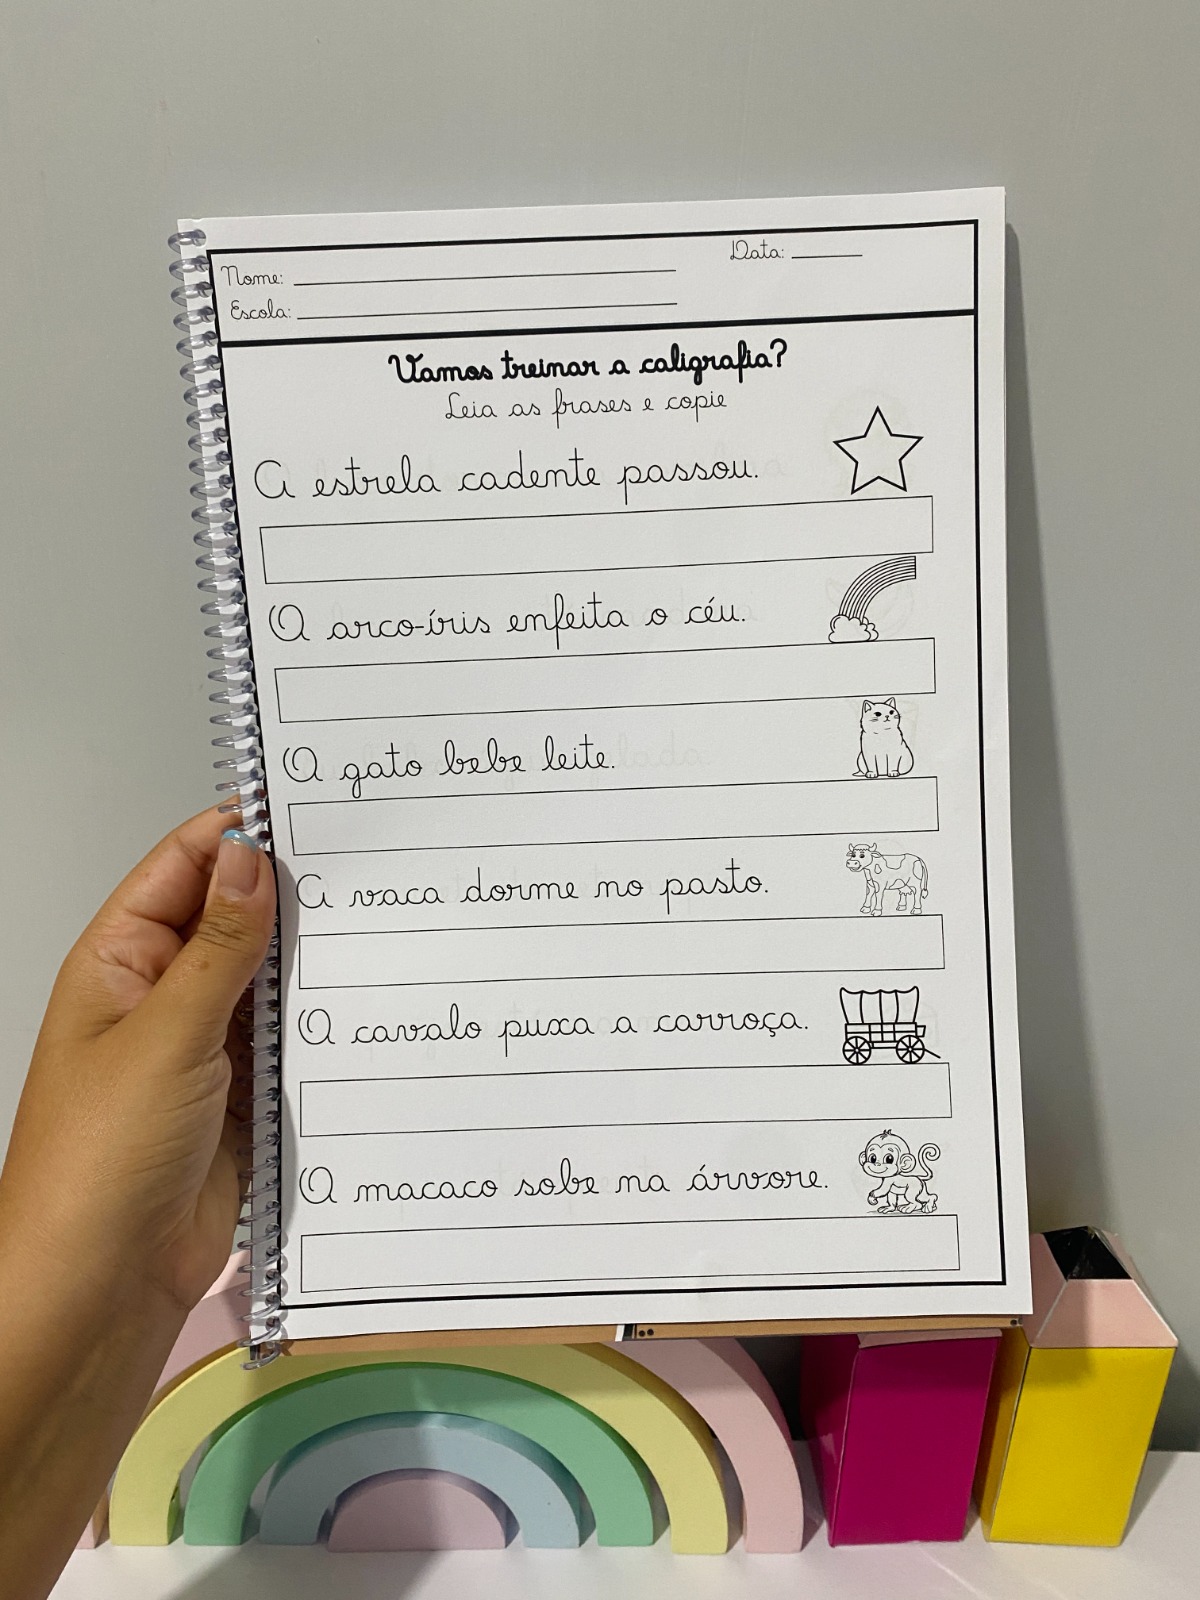 Nome:
Data:
Escola:
Vamos treinar a caligrafia?
Leia as frases e copie
A estrela cadente passou.
O arco-íris enfeita o céu.
O gato bebe leite.
A vaca dorme no pasto.
O cavalo puxa a carroça.
O macaco sobe na árvore.